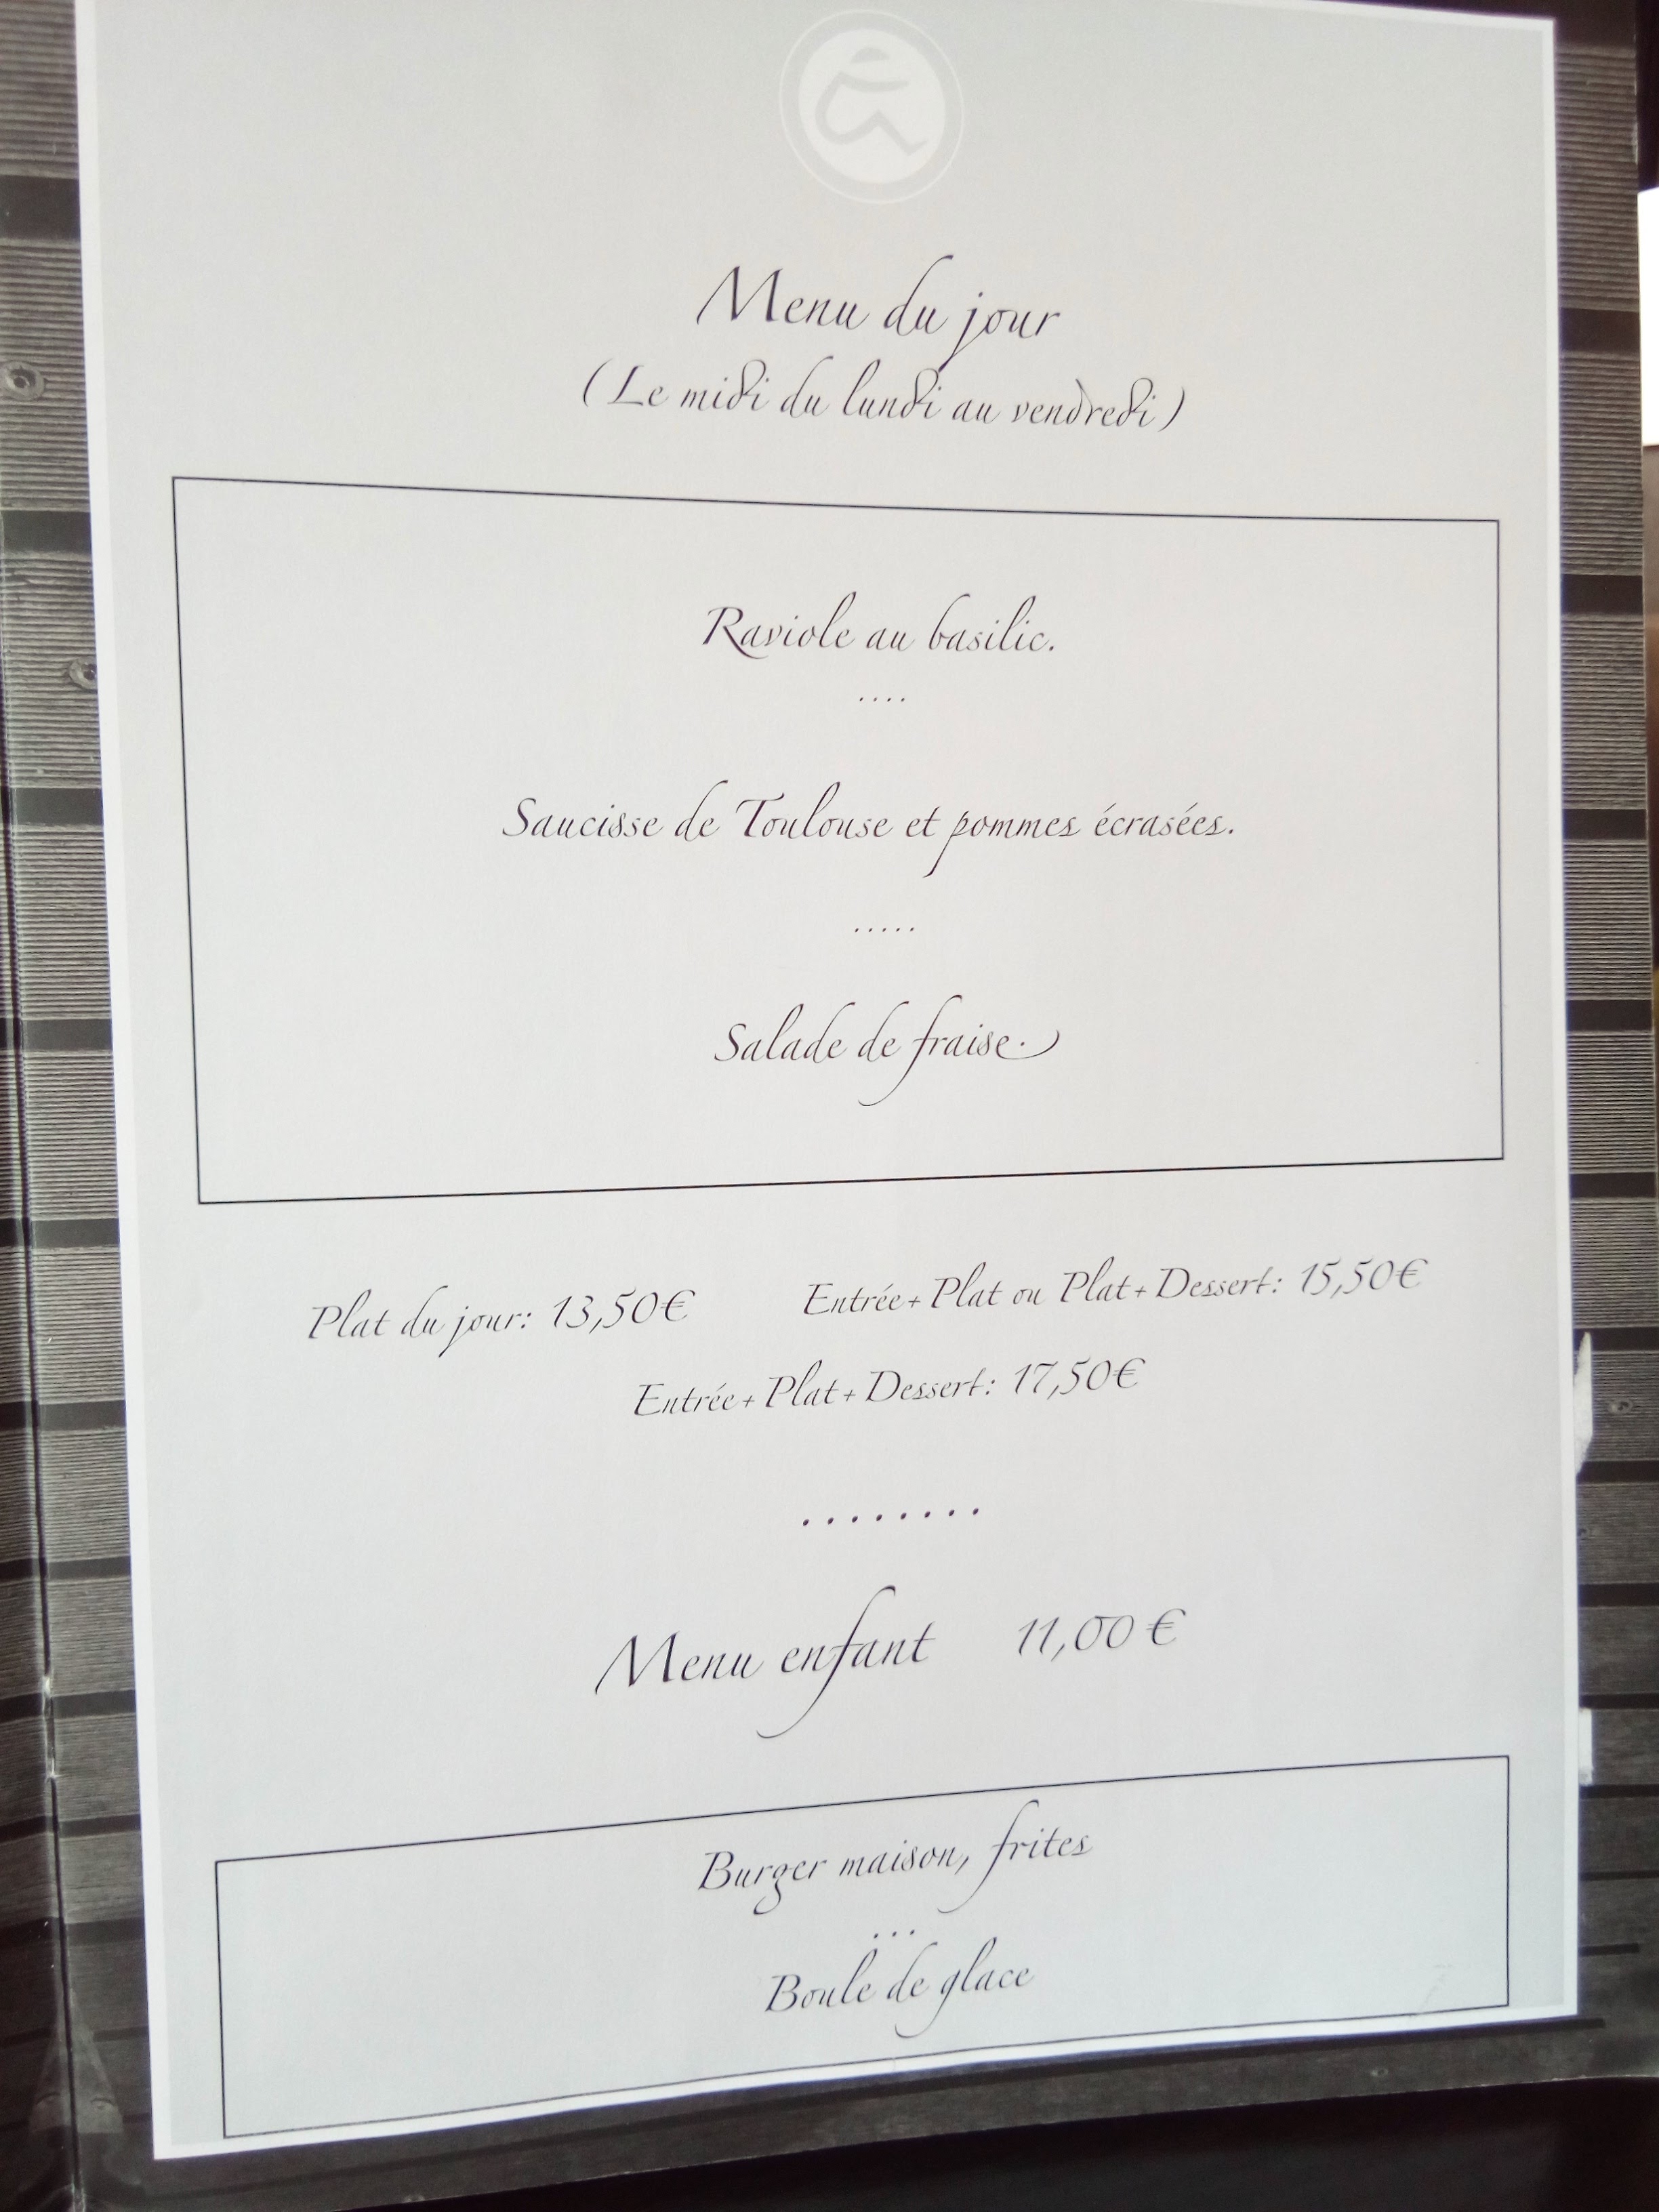 Menu du jour
(Le midi du lundi au vendredi)
Raviole au basilic.
....
Saucisse de Toulouse et pommes écrasées.
.....
Salade de fraise.
Plat du jour: 13,50€ Entrée+Plat ou Plat+Dessert: 15,50€
Entrée+Plat+Dessert: 17,50€
........
Menu enfant 11,00 €
Burger maison, frites
...
Boule de glace